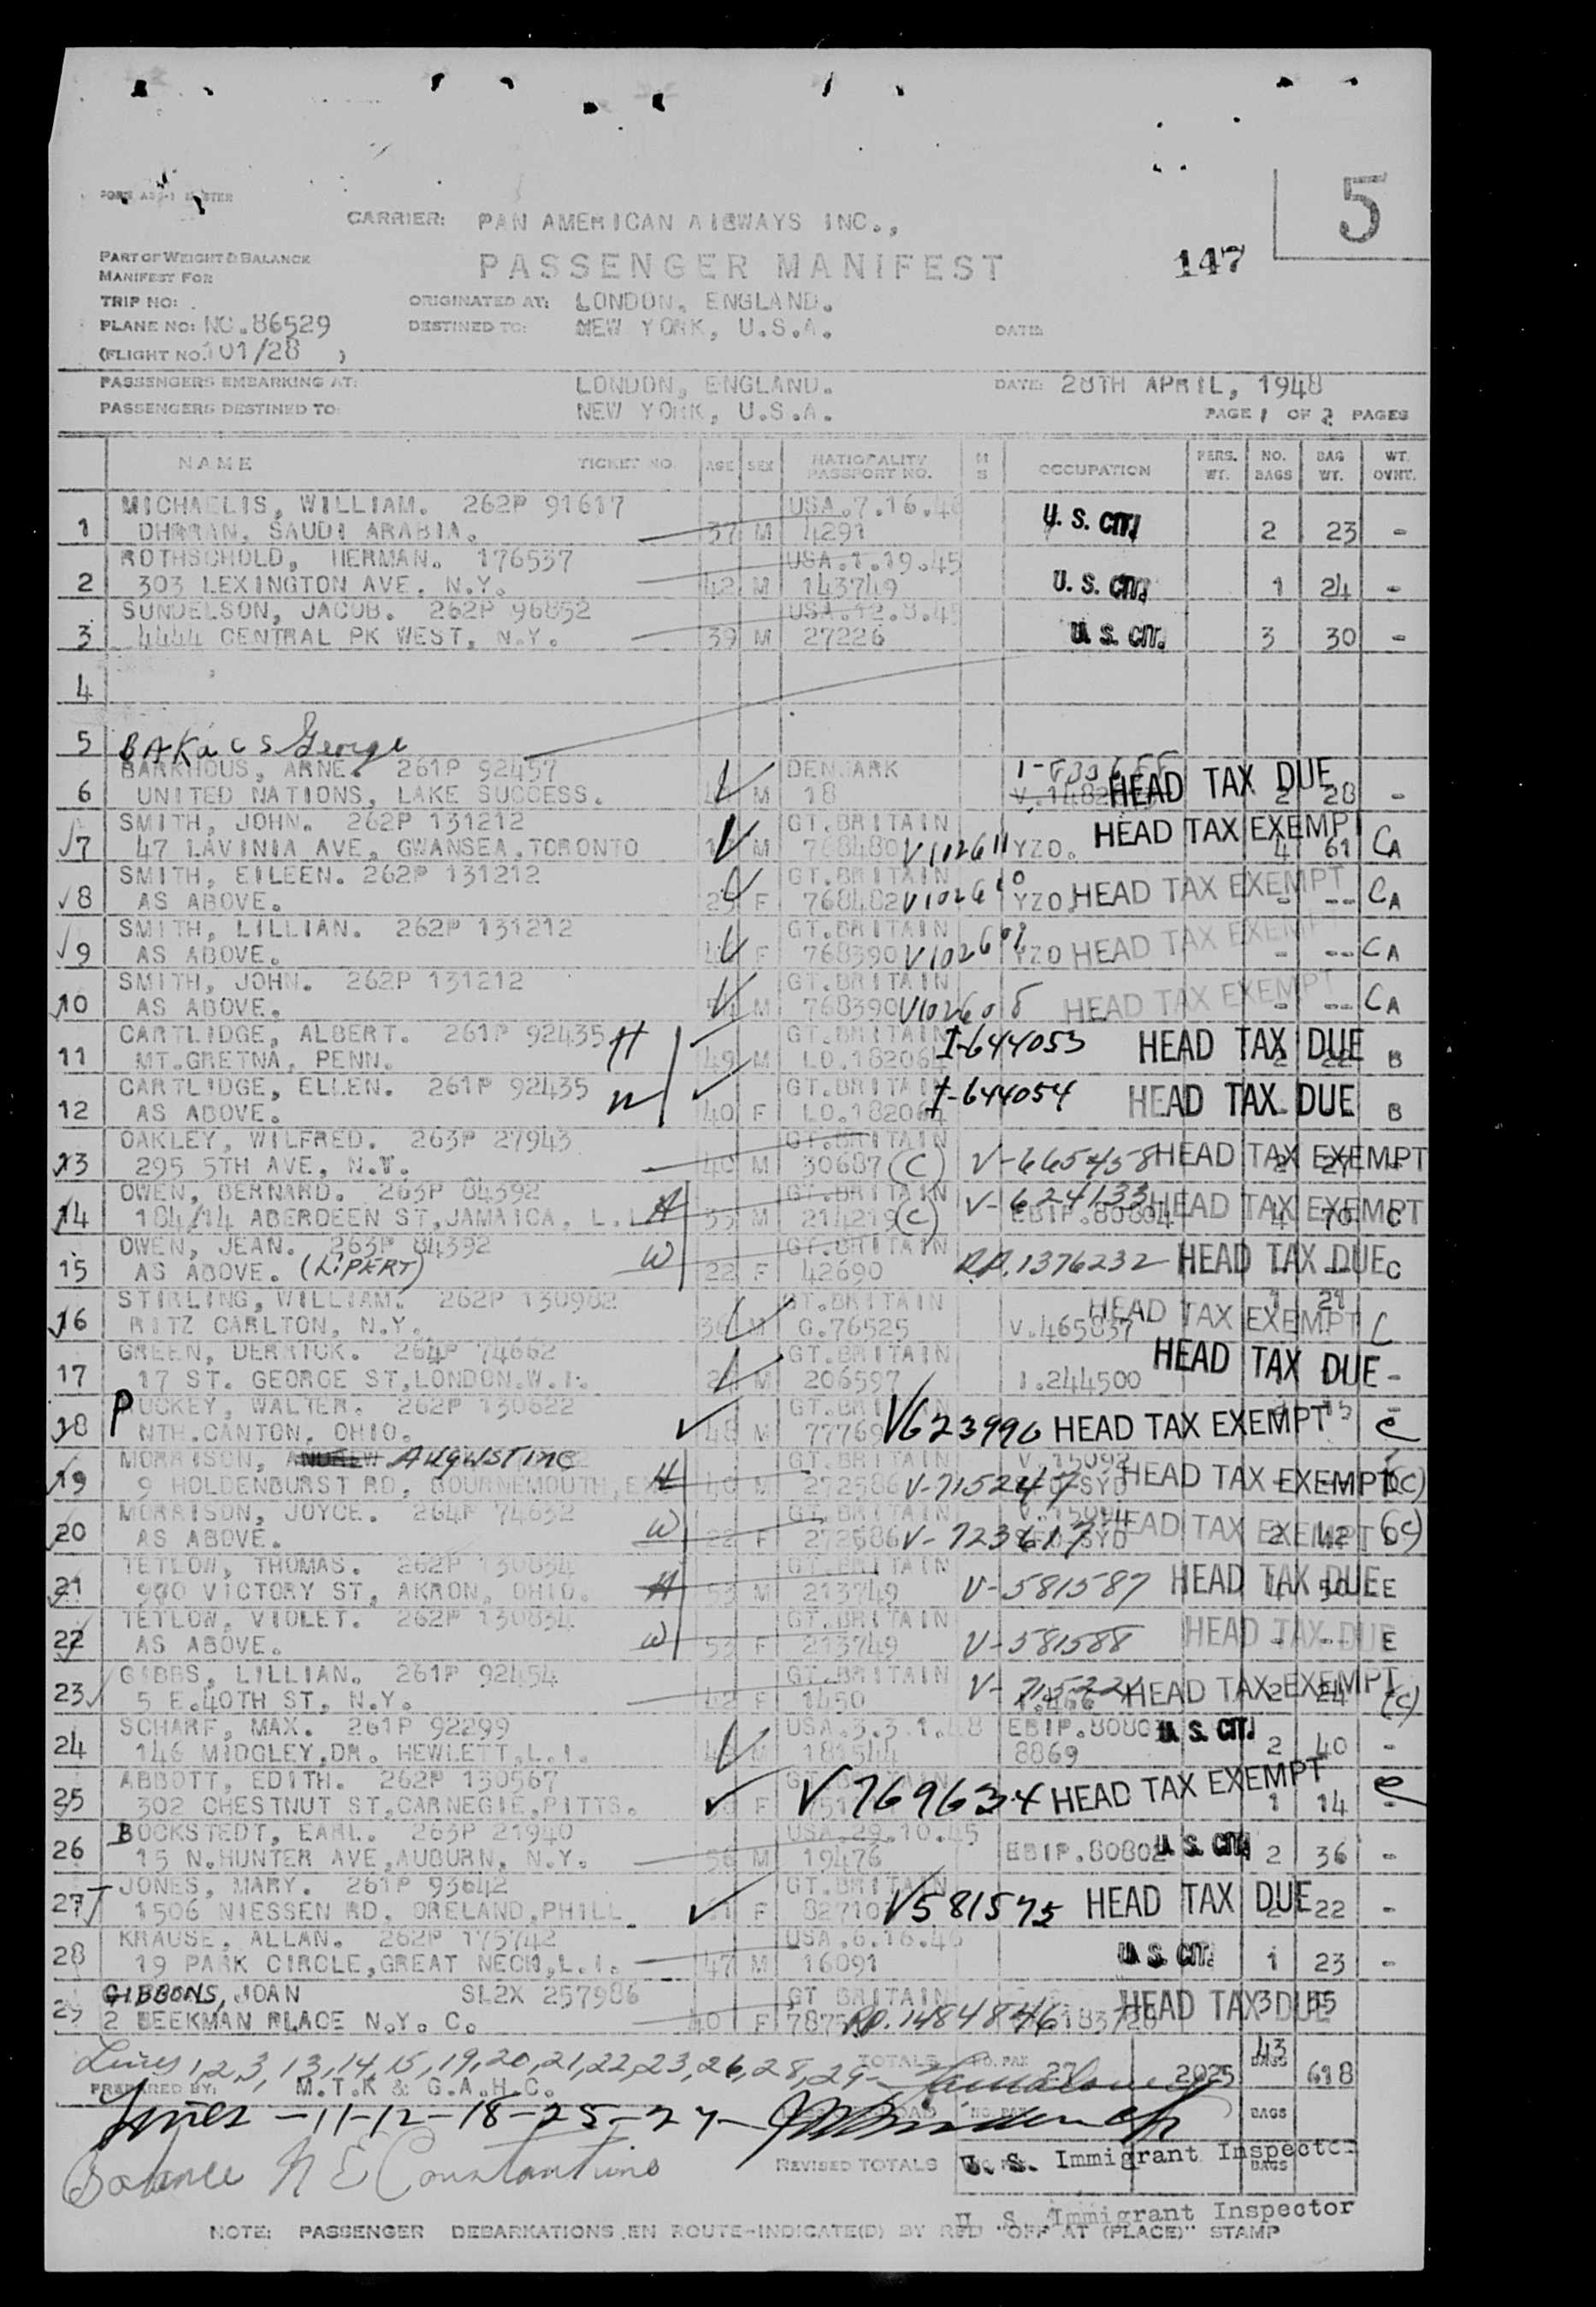 5
CARRIER: PAN AMERICAN AIRWAYS INC.,
147
PART OF WEIGHT & BALANCE
MANIFEST FOR
PASSENGER MANIFEST
TRIP NO:
ORIGINATED AT: LONDON, ENGLAND.
PLANE NO: NC.86529
DESTINED TO: NEW YORK, U.S.A. DATE:
(FLIGHT NO. 101/28 )
PASSENGERS EMBARKING AT: LONDON, ENGLAND. DATE: 28TH APRIL, 1948
PASSENGERS DESTINED TO: NEW YORK, U.S.A. PAGE 1 OF 2 PAGES
NAME TICKET NO. AGE SEX NATIONALITY PASSPORT NO. M S OCCUPATION PERS. WT. NO. BAGS BAG WT. WT. OVHT.
MICHAELIS, WILLIAM. 262P 91617 USA.7.16.46
1 DHRRAN, SAUDI ARABIA. 37 M 4291 U.S. CIT. 2 23 -
ROTHSCHOLD, HERMAN. 176537 USA.1.19.45
2 303 LEXINGTON AVE. N.Y. 42 M 143749 U.S. CIT. 1 24 -
SUNDELSON, JACOB. 262P 96852 USA.12.8.45
3 4444 CENTRAL PK WEST, N.Y. 39 M 27226 U.S. CIT. 3 30 -
4
5 BAKACS George
BARKHOUS, ARNE. 261P 92457 DENMARK
6 UNITED NATIONS, LAKE SUCCESS. M 18 HEAD TAX DUE 2 28 -
SMITH, JOHN. 262P 131212 GT.BRITAIN
7 47 LAVINIA AVE, GWANSEA, TORONTO M 768480 V102611 YZO. HEAD TAX EXEMPT 4 61 CA
SMITH, EILEEN. 262P 131212 GT.BRITAIN
8 AS ABOVE. F 768482 V102610 YZO. HEAD TAX EXEMPT - -- CA
SMITH, LILLIAN. 262P 131212 GT.BRITAIN
9 AS ABOVE. F 768390 V102609 YZO HEAD TAX EXEMPT - -- CA
SMITH, JOHN. 262P 131212 GT.BRITAIN
10 AS ABOVE. M 768390 V102608 HEAD TAX EXEMPT - -- CA
CARTLIDGE, ALBERT. 261P 92435 H GT.BRITAIN
11 MT.GRETNA, PENN. 49 M LO.182064 I-644053 HEAD TAX DUE 2 22 B
CARTLIDGE, ELLEN. 261P 92435 GT.BRITAIN
12 AS ABOVE. W 40 F LO.182064 I-644054 HEAD TAX DUE B
OAKLEY, WILFRED. 263P 27943 GT.BRITAIN
13 295 5TH AVE, N.Y. 40 M 30687 (C) V-665458 HEAD TAX EXEMPT 2 27
OWEN, BERNARD. 263P 84392 GT.BRITAIN
14 184/14 ABERDEEN ST, JAMAICA, L.I. H 33 M 214219 (C) V-624133 EBIP.80804 HEAD TAX EXEMPT 4 70 C
OWEN, JEAN. 263P 84392 GT.BRITAIN
15 AS ABOVE. (LIPERT) W 22 F 42690 R.P. 1376232 HEAD TAX DUE C
STIRLING, WILLIAM. 262P 130982 GT.BRITAIN
16 RITZ CARLTON, N.Y. M G.76525 V.465837 HEAD TAX EXEMPT C
GREEN, DERRICK. 264P 74662 GT.BRITAIN
17 17 ST. GEORGE ST, LONDON.W.1. M 206597 1.244500 HEAD TAX DUE -
PUCKEY, WALTER. 262P 130622 GT.BRITAIN
18 NTH.CANTON, OHIO. 48 M 77769 V623990 HEAD TAX EXEMPT C
MORRISON, ANDREW AUGUSTINE GT.BRITAIN V.15092
19 9 HOLDENBURST RD, BOURNEMOUTH, H 40 M 272586 V-715247 SYD HEAD TAX EXEMPT (C)
MORRISON, JOYCE. 264P 74632 GT.BRITAIN V.15094
20 AS ABOVE. W 22 F 272586 V-723617 SYD HEAD TAX EXEMPT 2 42 (C)
TETLOW, THOMAS. 262P 130834 GT.BRITAIN
21 900 VICTORY ST, AKRON, OHIO. H 53 M 213749 V-581587 HEAD TAX DUE 50 E
TETLOW, VIOLET. 262P 130834 GT.BRITAIN
22 AS ABOVE. W 53 F 213749 V-581588 HEAD TAX DUE - -- E
GIBBS, LILLIAN. 261P 92454 GT.BRITAIN
23 5 E.40TH ST, N.Y. 42 F 1450 V- HEAD TAX EXEMPT 2 24 (C)
SCHARF, MAX. 261P 92299 USA.3.3.1.48 EBIP.8080 U.S. CIT.
24 146 MIDGLEY.DR. HEWLETT, L.I. M 181544 8869 2 40 -
ABBOTT, EDITH. 262P 130567
25 302 CHESTNUT ST, CARNEGIE, PITTS. F V769634 HEAD TAX EXEMPT 1 14 C
BOCKSTEDT, EARL. 263P 21940 USA.29.10.45
26 15 N.HUNTER AVE, AUBURN, N.Y. 56 M 19476 EBIP.80802 U.S. CIT. 2 36 -
JONES, MARY. 261P 93642 GT.BRITAIN
27 1506 NIESSEN RD, ORELAND, PHILL F 82710 V581575 HEAD TAX DUE 22 -
KRAUSE, ALLAN. 262P 175742 USA.6.16.46
28 19 PARK CIRCLE, GREAT NECK, L.I. 47 M 16091 U.S. CIT. 1 23 -
GIBBONS, JOAN SL2X 257986 GT BRITAIN
29 2 BEEKMAN PLACE N.Y. C. 40 F R.P. 1484846 HEAD TAX DUE 3
Lines 1,2,3, 13,14,15,19,20,21,22,23,26,28,29- TOTALS NO. PAX 27 2025 43 BAGS 698
PREPARED BY: M.T.K & G.A.H.C.
Lines -11-12-18-25-27- NO. PAX BAGS
Balance N E Constantine REVISED TOTALS U. S. Immigrant Inspector BAGS
U. S. Immigrant Inspector
NOTE: PASSENGER DEBARKATIONS EN ROUTE-INDICATE(D) BY RED "OFF AT (PLACE)" STAMP